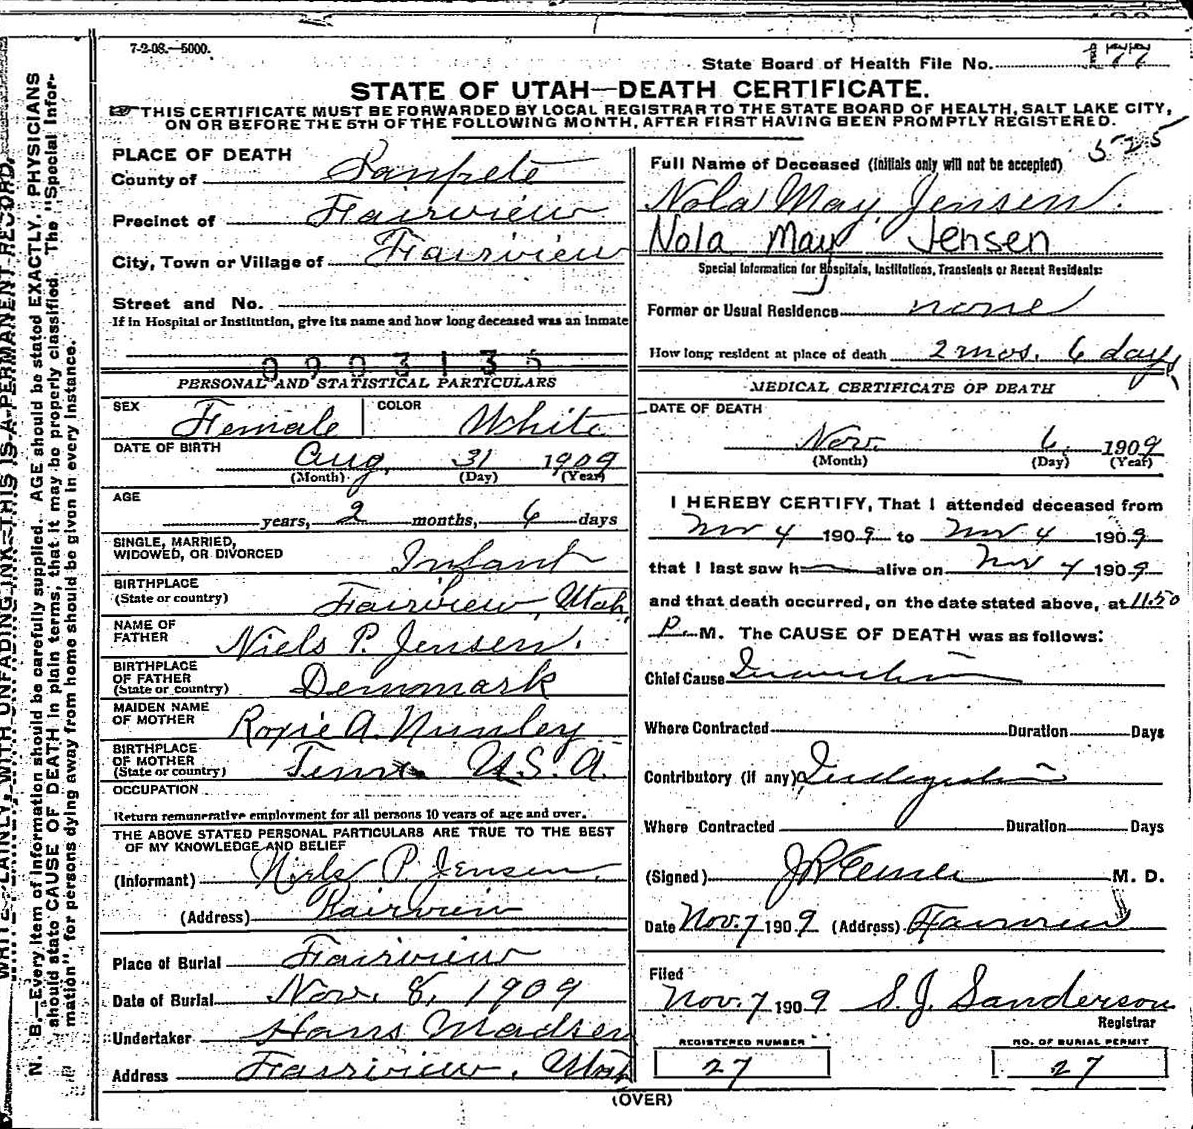 7-2-08.—5000.
State Board of Health File No. 177
STATE OF UTAH—DEATH CERTIFICATE.
THIS CERTIFICATE MUST BE FORWARDED BY LOCAL REGISTRAR TO THE STATE BOARD OF HEALTH, SALT LAKE CITY,
ON OR BEFORE THE 5TH OF THE FOLLOWING MONTH, AFTER FIRST HAVING BEEN PROMPTLY REGISTERED.
525
PLACE OF DEATH
County of Sanpete
Precinct of Fairview
City, Town or Village of Fairview
Street and No.
If in Hospital or Institution, give its name and how long deceased was an inmate
0903135
PERSONAL AND STATISTICAL PARTICULARS
SEX Female COLOR White
DATE OF BIRTH Aug, 31 1909
(Month) (Day) (Year)
AGE
years, 2 months, 6 days
SINGLE, MARRIED,
WIDOWED, OR DIVORCED Infant
BIRTHPLACE
(State or country) Fairview, Utah
NAME OF
FATHER Niels P. Jensen.
BIRTHPLACE
OF FATHER
(State or country) Denmark
MAIDEN NAME
OF MOTHER Roxie A. Nunley
BIRTHPLACE
OF MOTHER
(State or country) Tenn U.S.A.
OCCUPATION
Return remunerative employment for all persons 10 years of age and over.
THE ABOVE STATED PERSONAL PARTICULARS ARE TRUE TO THE BEST
OF MY KNOWLEDGE AND BELIEF
(Informant) Niels P. Jensen.
(Address) Fairview
Place of Burial Fairview
Date of Burial Nov. 8, 1909
Undertaker Hans Madsen
Address Fairview, Utah
Full Name of Deceased (Initials only will not be accepted)
Nola May Jensen.
Nola May Jensen
Special Information for Hospitals, Institutions, Transients or Recent Residents:
Former or Usual Residence none
How long resident at place of death 2 mos. 6 days
MEDICAL CERTIFICATE OF DEATH
DATE OF DEATH
Nov. 6, 1909
(Month) (Day) (Year)
I HEREBY CERTIFY, That I attended deceased from
Nov 4 1909 to Nov 4 1909
that I last saw h alive on Nov 4 1909
and that death occurred, on the date stated above, at 11.50
P. M. The CAUSE OF DEATH was as follows:
Chief Cause Inanition
Where Contracted Duration Days
Contributory (if any) Indigestion
Where Contracted Duration Days
(Signed) M. D.
Date Nov. 7 1909 (Address) Fairview
Filed
Nov. 7 1909 S. J. Sanderson
Registrar
REGISTERED NUMBER NO. OF BURIAL PERMIT
27 27
(OVER)
WRITE PLAINLY, WITH UNFADING INK—THIS IS A PERMANENT RECORD.
N. B.—Every item of information should be carefully supplied. AGE should be stated EXACTLY. PHYSICIANS
should state CAUSE OF DEATH in plain terms, that it may be properly classified. The "Special Infor-
mation" for persons dying away from home should be given in every instance.